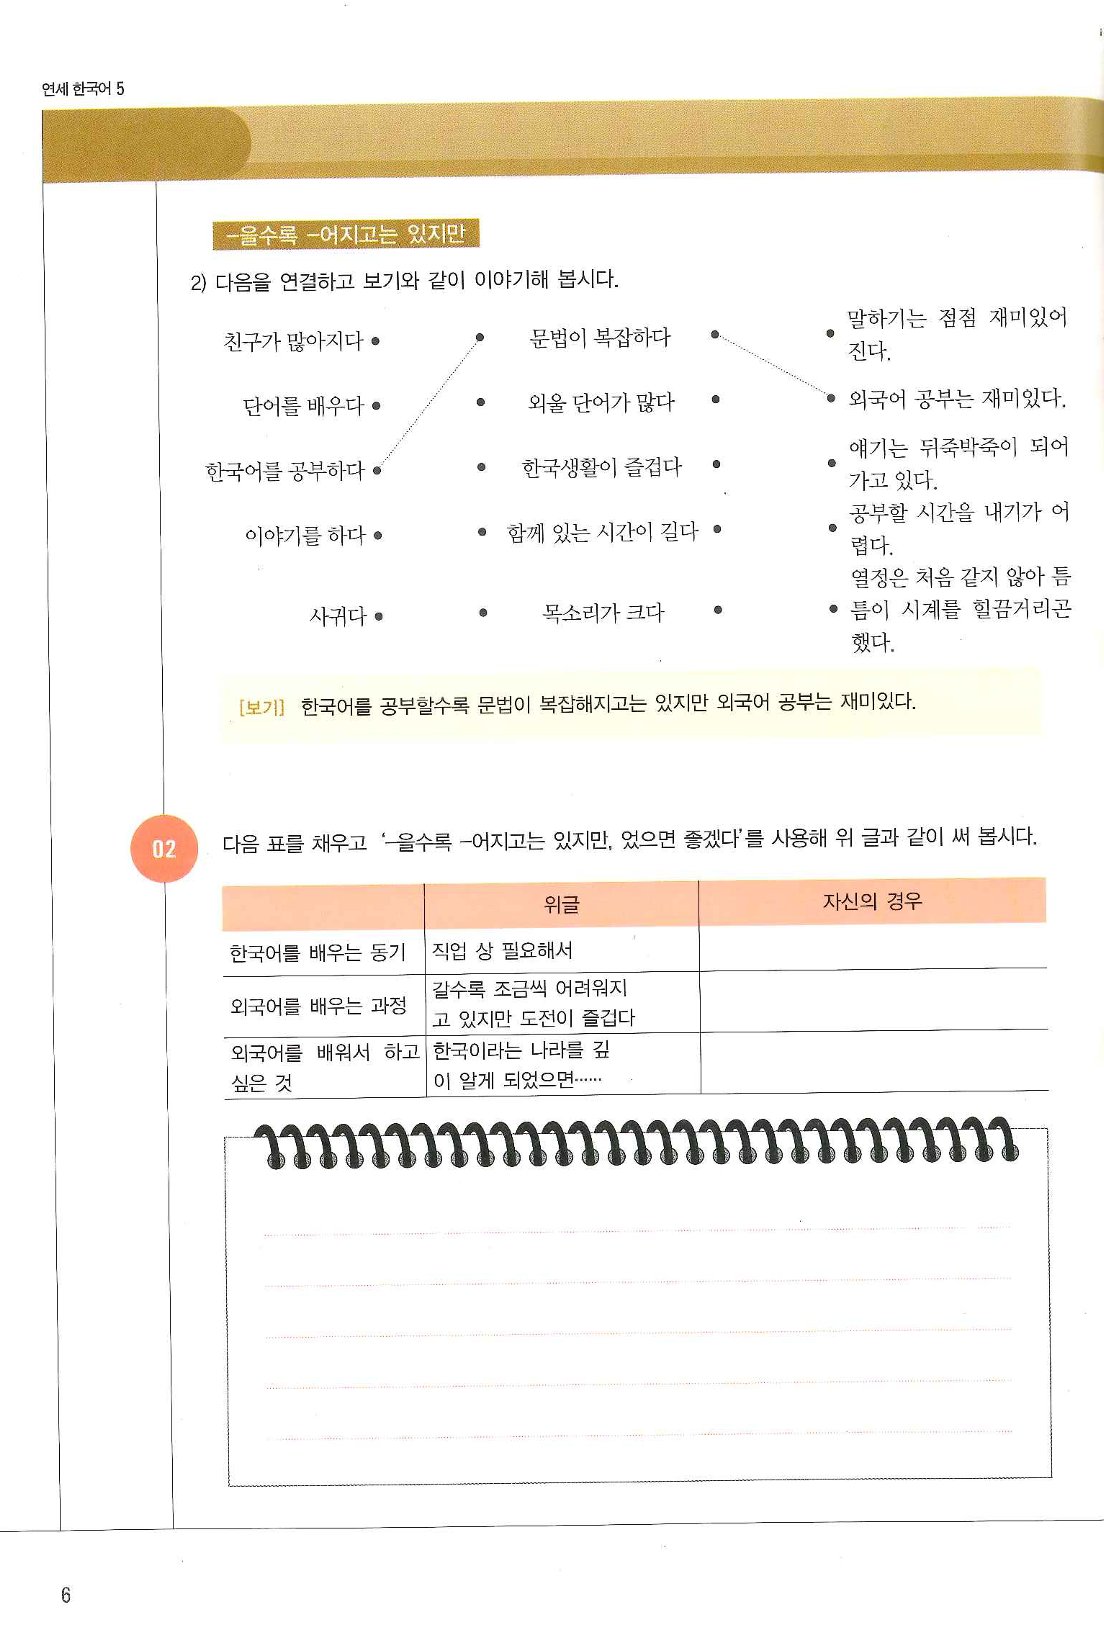 연세 한국어 5
-을수록 -어지고는 있지만
2) 다음을 연결하고 보기와 같이 이야기해 봅시다.
친구가 많아지다 • • 문법이 복잡하다 • • 말하기는 점점 재미있어
진다.
단어를 배우다 • • 외울 단어가 많다 • • 외국어 공부는 재미있다.
한국어를 공부하다 • • 한국생활이 즐겁다 • • 얘기는 뒤죽박죽이 되어
가고 있다.
이야기를 하다 • • 함께 있는 시간이 길다 • • 공부할 시간을 내기가 어
렵다.
사귀다 • • 목소리가 크다 • • 열정은 처음 같지 않아 틈
틈이 시계를 힐끔거리곤
했다.
[보기] 한국어를 공부할수록 문법이 복잡해지고는 있지만 외국어 공부는 재미있다.
02 다음 표를 채우고 ‘-을수록 -어지고는 있지만, 었으면 좋겠다’를 사용해 위 글과 같이 써 봅시다.
위글 자신의 경우
한국어를 배우는 동기 직업 상 필요해서
외국어를 배우는 과정 갈수록 조금씩 어려워지
고 있지만 도전이 즐겁다
외국어를 배워서 하고 한국이라는 나라를 깊
싶은 것 이 알게 되었으면……
6